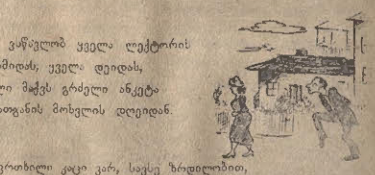 ვასწავლობ ყველა ლექტორის
მიდას, ყველა დეიდას,
ლი მაქვს გრძელი ანკეტა
ათგანის მოსვლის დღეიდან.
ფრთხილი კაცი ვარ, სავსე ზრდილობით,